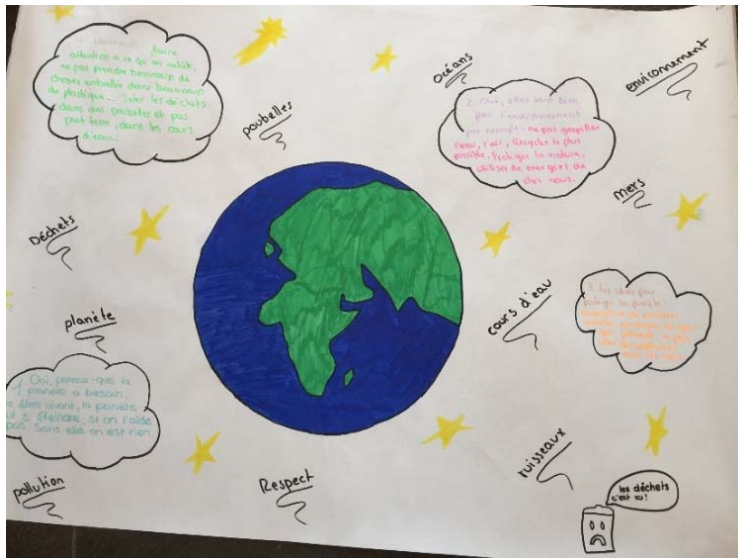 faire
attention a ce qu'on achète,
ne pas prendre beaucoup de
choses emballé dans beaucoup
de plastique... Jeter les déchets
dans des poubelles et pas
par terre, dans les cours
d'eau.
poubelles
Océans
environnement
2. Oui, elles sont bien
pour l'environnement
par exemple: ne pas gaspiller
l'eau, l'air, Recycler le plus
possible, Protéger la nature,
utiliser de energies de
chez nous.
mers
Déchets
planète
cours d'eau
3. Les idées pour
protéger la planète:
Oui, parce-que la
planète a besoin,
êtres vivant, la planète
s'éteindre, si on l'aide
pas. Sans elle on est rien.
pollution
Respect
ruisseaux
les déchets
c'est ici!